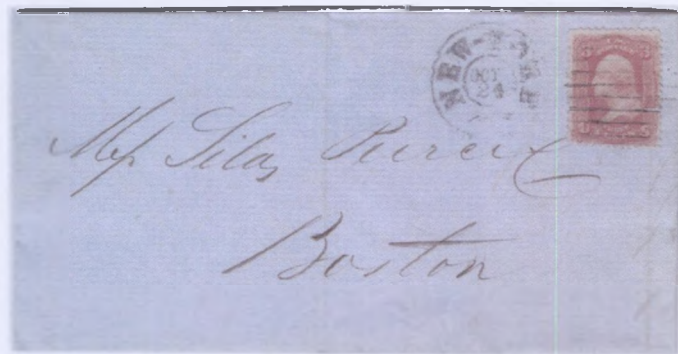 NEW-YORK
OCT
24
Mess Silas Peirce &
Boston